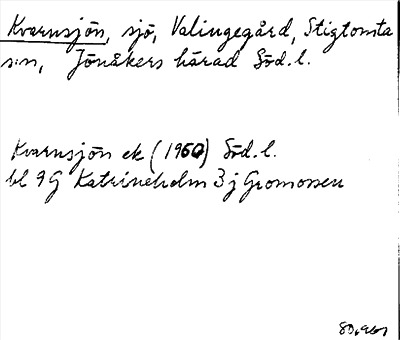 Kvarnsjön, sjö, Valingegård, Stigtomta
s:n, Jönåkers härad Söd. l.
Kvarnsjön ek (1960) Söd. l.
bl 9G Katrineholm 3j Gromossen